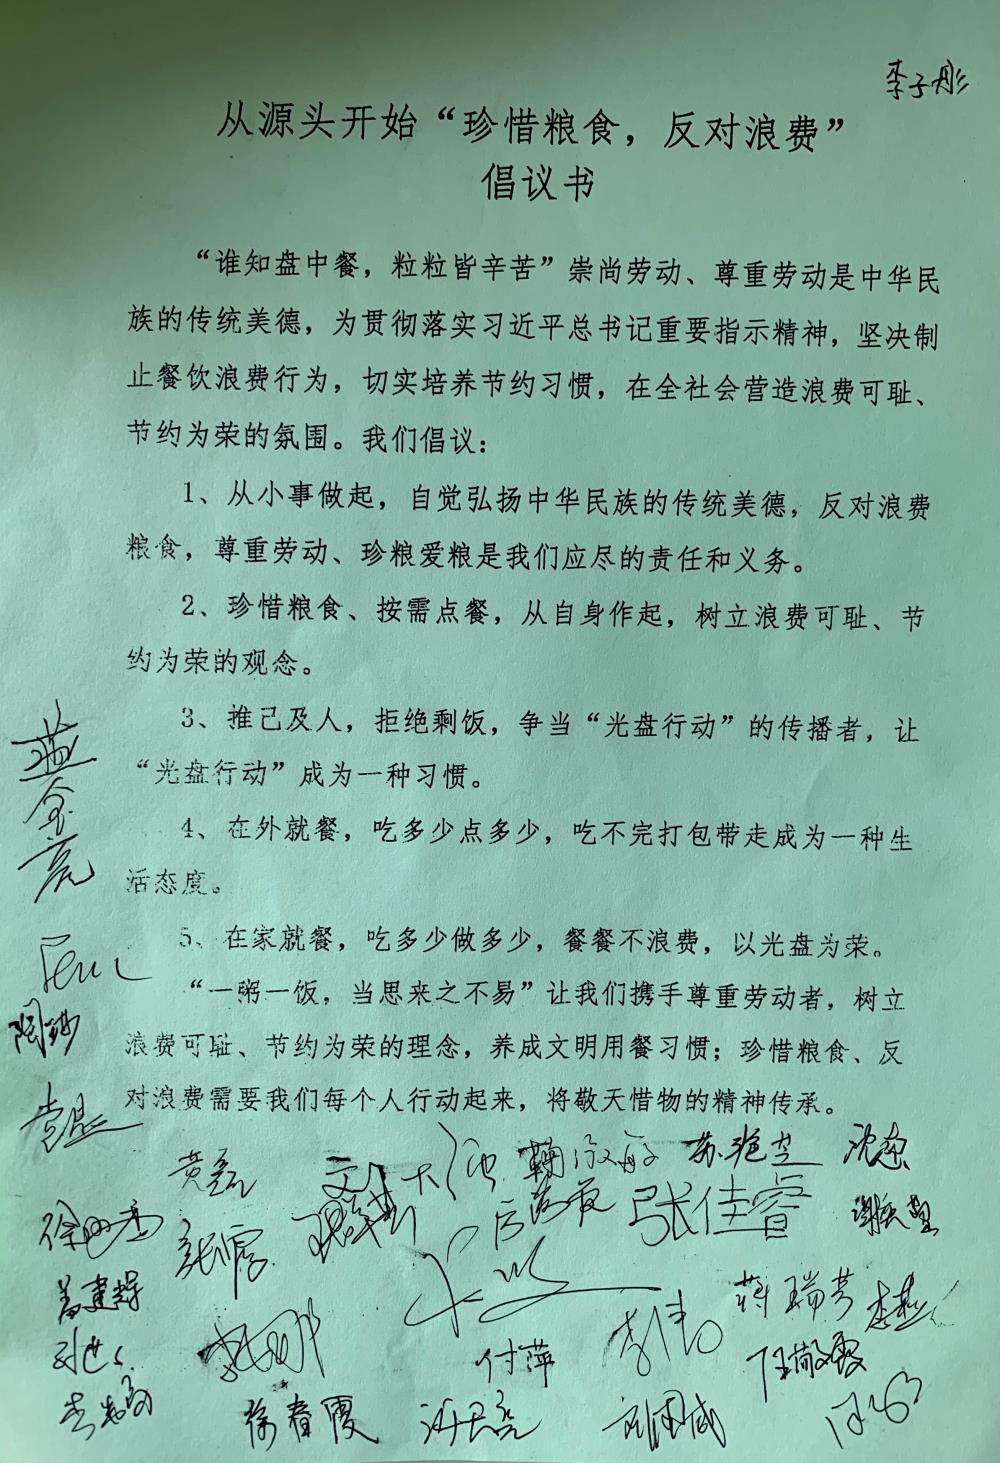 李子彤
从源头开始“珍惜粮食，反对浪费”
倡议书
“谁知盘中餐，粒粒皆辛苦”崇尚劳动、尊重劳动是中华民
族的传统美德，为贯彻落实习近平总书记重要指示精神，坚决制
止餐饮浪费行为，切实培养节约习惯，在全社会营造浪费可耻、
节约为荣的氛围。我们倡议：
1、从小事做起，自觉弘扬中华民族的传统美德，反对浪费
粮食，尊重劳动、珍粮爱粮是我们应尽的责任和义务。
2、珍惜粮食、按需点餐，从自身作起，树立浪费可耻、节
约为荣的观念。
3、推己及人，拒绝剩饭，争当“光盘行动”的传播者，让
“光盘行动”成为一种习惯。
4、在外就餐，吃多少点多少，吃不完打包带走成为一种生
活态度。
5、在家就餐，吃多少做多少，餐餐不浪费，以光盘为荣。
“一粥一饭，当思来之不易”让我们携手尊重劳动者，树立
浪费可耻、节约为荣的理念，养成文明用餐习惯；珍惜粮食、反
对浪费需要我们每个人行动起来，将敬天惜物的精神传承。
蓝金亮
陶莎
黄磊
张佳睿
蒋瑞芳
付萍
徐春霞